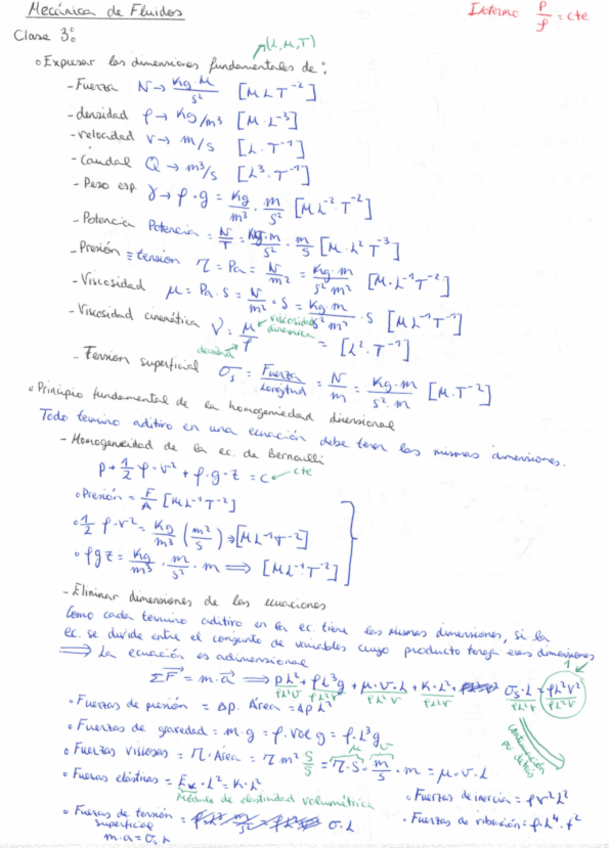 Mecánica de Fluidos
Interno P/ρ = cte
Clase 3:
(L, M, T)
◦ Expresar las dimensiones fundamentales de:
- Fuerza N → Kg·M/s² [M L T⁻²]
- densidad ρ → Kg/m³ [M·L⁻³]
- velocidad v → m/s [L·T⁻¹]
- Caudal Q → m³/s [L³·T⁻¹]
- Peso esp. γ → ρ·g = Kg/m³ · m/s² [M L⁻² T⁻²]
- Potencia Potencia = N/T = Kg·m/s² · m/s [M·L² T⁻³]
- Presión ≡ tensión τ = Pa = N/m² = Kg·m/s² m² [M·L⁻¹ T⁻²]
- Viscosidad μ = Pa·s = N/m² · s = Kg·m/s² m² · s [M L⁻¹ T⁻¹]
- Viscosidad cinemática ν = μ/ρ = [L²·T⁻¹]
viscosidad dinámica
densidad
- Tension superficial σs = Fuerza/Longitud = N/m = Kg·m/s²·m [M·T⁻²]
◦ Principio fundamental de la homogeniedad dimensional
Todo termino aditivo en una ecuación debe tener las mismas dimensiones.
- Homogeneidad de la ec. de Bernoulli
P + 1/2 ρ·v² + ρ·g·z = c ← cte
◦ Presión = F/A [M L⁻¹ T⁻²]
◦ 1/2 ρ·v² = Kg/m³ (m²/s) ⇒ [M L⁻¹ T⁻²]
◦ ρgz = Kg/m³ · m/s² · m ⟹ [M L⁻¹ T⁻²]
- Eliminar dimensiones de las ecuaciones
Como cada termino aditivo en la ec. tiene las mismas dimensiones, si la
ec. se divide entre el conjunto de variables cuyo producto tenga esas dimensiones
⟹ La ecuación es adimensional
ΣF = m·a ⟹ PL² + ρL³g + μ·v·L + K·L² + σs·L = ρL²V²
1
continuación por detras
◦ Fuerzas de presión = Δp. Área = Δp L²
◦ Fuerzas de gravedad = m·g = ρ·Vol g = ρ·L³g
◦ Fuerzas viscosas = τ·Área = τ m² s/s = τ·s · m/s · m = μ·v·L
◦ Fuerzas elásticas = Ev·L² = K·L²
Módulo de elasticidad volumétrica
◦ Fuerzas de inercia = ρv²L²
◦ Fuerzas de tensión superficial = σ·L
◦ Fuerzas de vibración = ρ·L⁴·f²
m·a = σs L